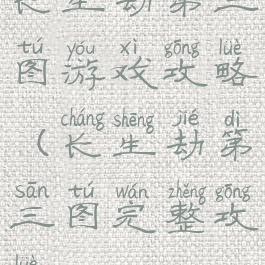 长生劫第三
tú yóu xì gōng lüè
图游戏攻略
cháng shēng jié dì
（长生劫第
sān tú wán zhěng gōng
三图完整攻
lüè